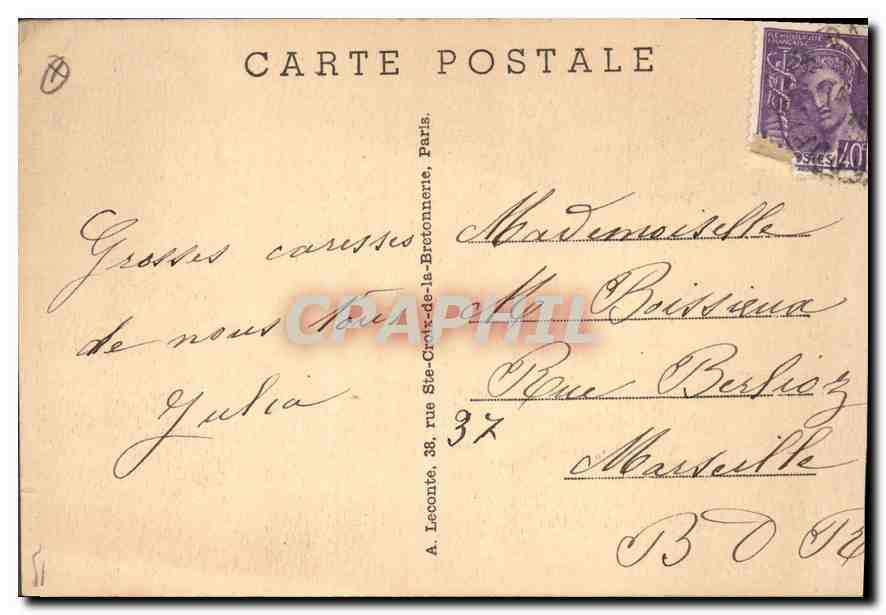 CARTE POSTALE
RÉPUBLIQUE
FRANÇAISE
POSTES 40
Grosses caresses
de nous tous
Julia
A. Leconte, 38, rue Ste-Croix-de-la-Bretonnerie, Paris.
Mademoiselle
M Boissieux
37 Rue Berlioz
Marseille
B D R
CPAPHIL